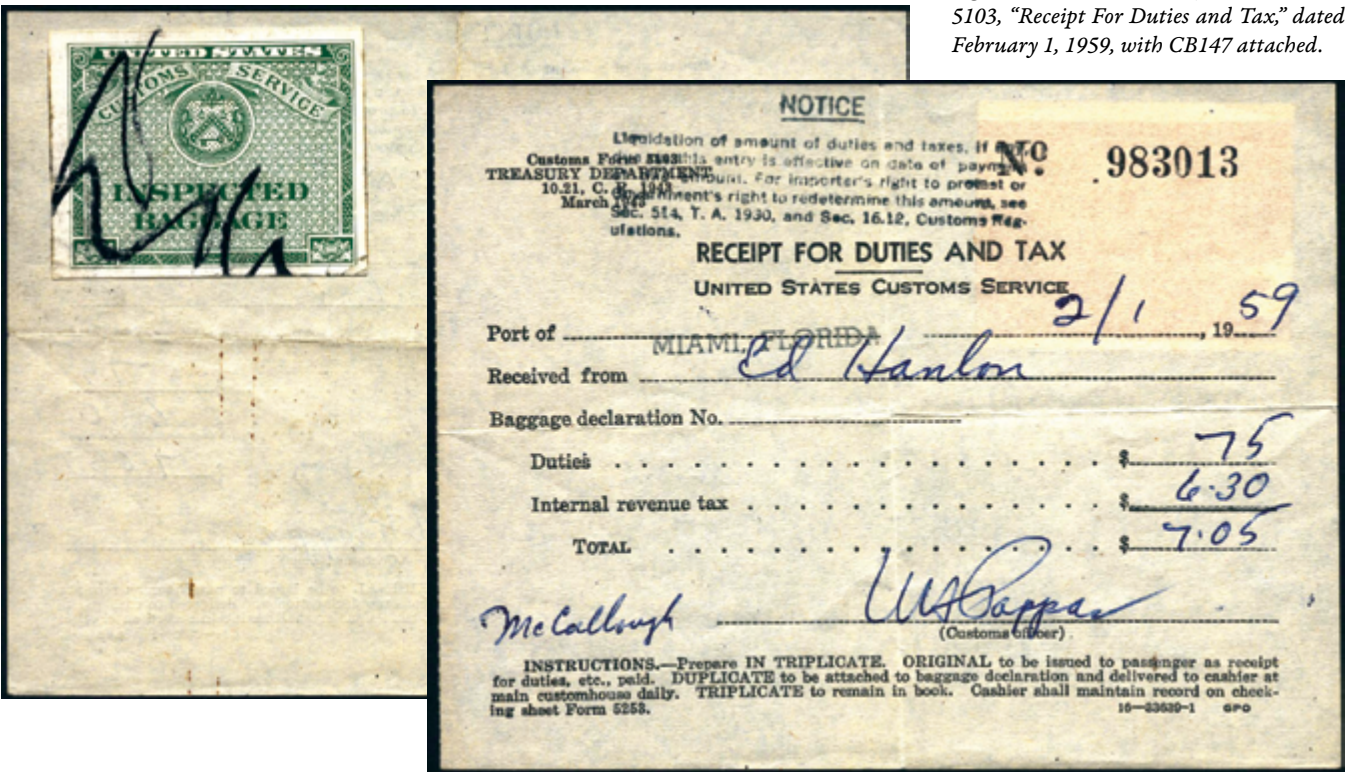 5103, “Receipt For Duties and Tax,” dated
February 1, 1959, with CB147 attached.
UNITED STATES
CUSTOMS SERVICE
INSPECTED
BAGGAGE
NOTICE
Liquidation of amount of duties and taxes, if
this entry is effective on date of
amount. For importer's right to protest or
right to redetermine this amount, see
Sec. 514, T. A. 1930, and Sec. 16.12, Customs Reg-
ulations.
Customs Form 5103
TREASURY DEPARTMENT
10.21, C. R. 1943
March 1943
No 983013
RECEIPT FOR DUTIES AND TAX
UNITED STATES CUSTOMS SERVICE
2/1, 19 59
Port of MIAMI, FLORIDA
Received from Ed Hanlon
Baggage declaration No.
Duties $ 75
Internal revenue tax $ 6.30
TOTAL $ 7.05
McCallough Pappas
(Customs officer)
INSTRUCTIONS.—Prepare IN TRIPLICATE. ORIGINAL to be issued to passenger as receipt
for duties, etc., paid. DUPLICATE to be attached to baggage declaration and delivered to cashier at
main customhouse daily. TRIPLICATE to remain in book. Cashier shall maintain record on check-
ing sheet Form 5253.
16—33639-1 GPO